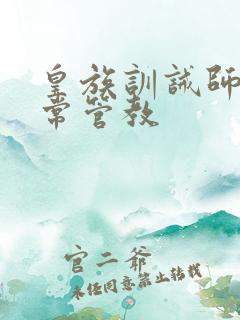 皇族訓誡師
常管教
官二爺
未經同意禁止轉載